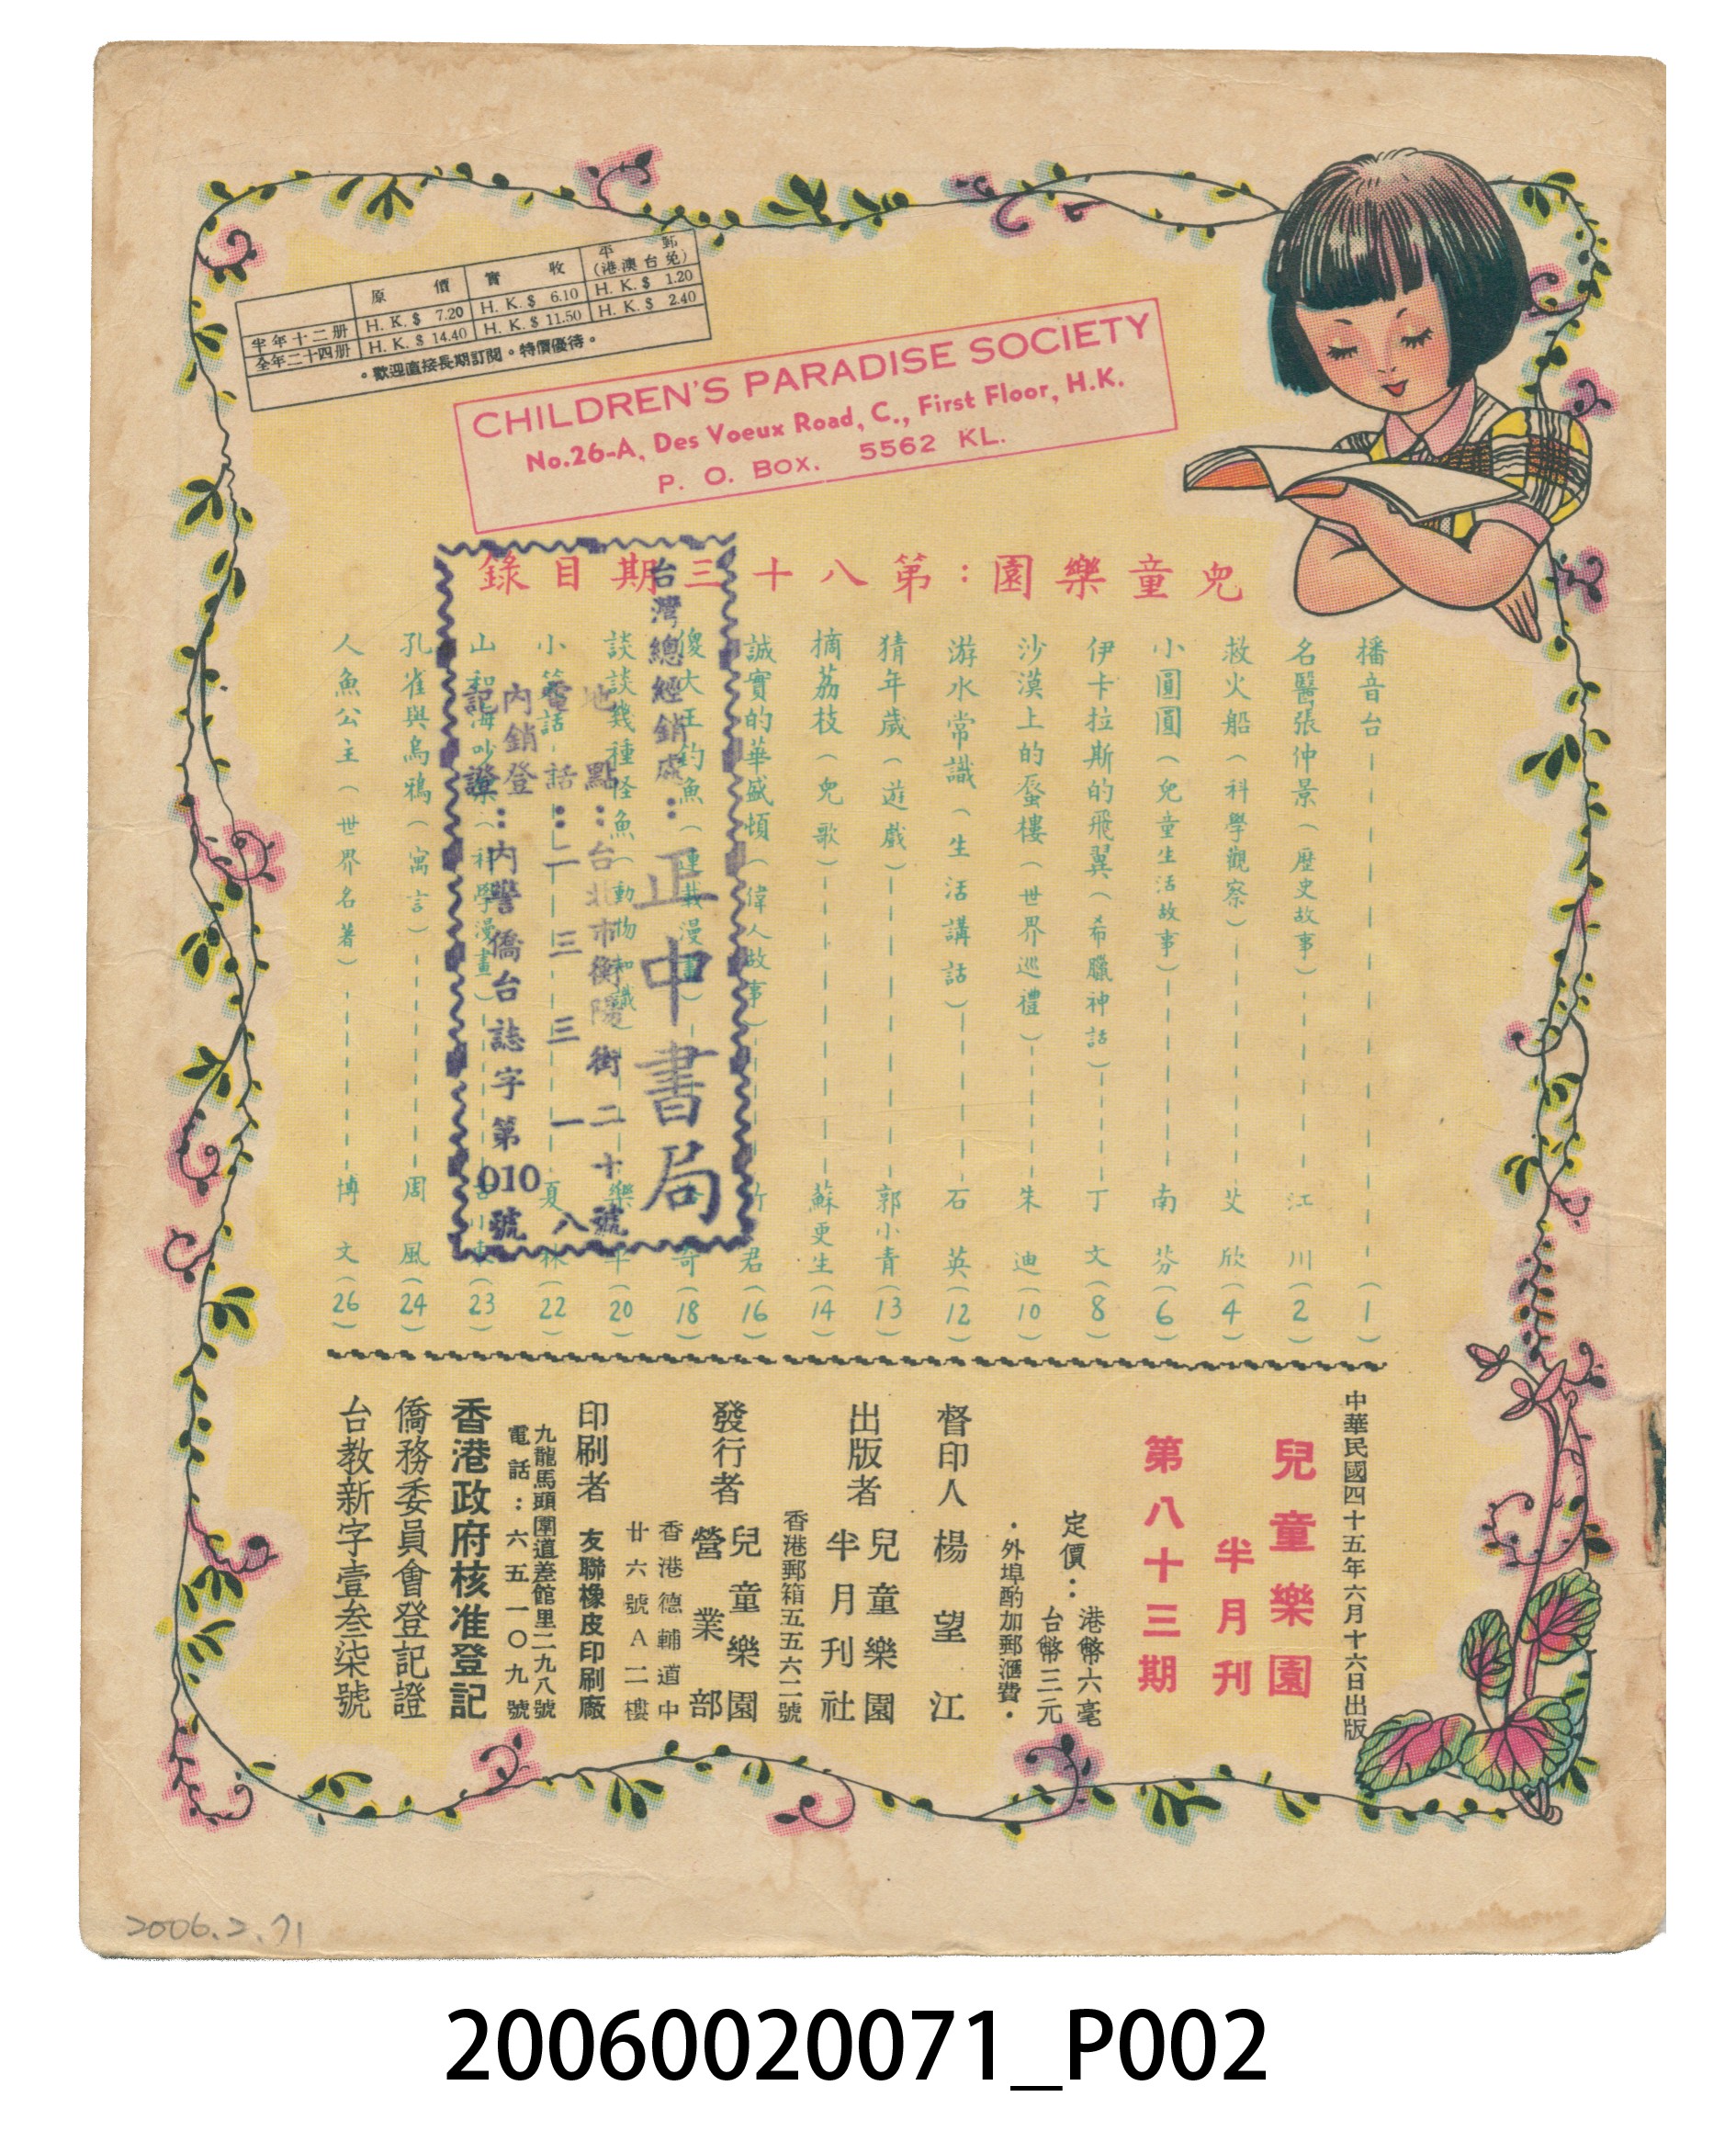 原價 實收 平郵（港澳台免）
半年十二冊 H. K. $ 7.20 H. K. $ 6.10 H. K. $ 1.20
全年二十四冊 H. K. $ 14.40 H. K. $ 11.50 H. K. $ 2.40
。歡迎直接長期訂閱。特價優待。
CHILDREN'S PARADISE SOCIETY
No.26-A, Des Voeux Road, C., First Floor, H.K.
P. O. Box. 5562 KL.
兒童樂園：第八十三期目錄
播音台 (1)
名醫張仲景（歷史故事） 江川 (2)
救火船（科學觀察） 艾欣 (4)
小圓圓（兒童生活故事） 南芬 (6)
伊卡拉斯的飛翼（希臘神話） 丁文 (8)
沙漠上的蜃樓（世界巡禮） 朱迪 (10)
游水常識（生活講話） 石英 (12)
猜年歲（遊戲） 郭小青 (13)
摘荔枝（兒歌） 蘇更生 (14)
誠實的華盛頓（偉人故事） 君 (16)
傻大王釣魚（連載漫畫） 奇 (18)
談談幾種怪魚（動物知識） 樂平 (20)
小 夏林 (22)
山和海（科學漫畫） (23)
孔雀與烏鴉（寓言） 周風 (24)
人魚公主（世界名著） 博文 (26)
台灣總經銷處：正中書局
地點：台北市衡陽街二十號
電話：二三三一八
內銷登記證：內警僑台誌字第010號
中華民國四十五年六月十六日出版
兒童樂園
半月刊
第八十三期
定價：港幣六毫
台幣三元
・外埠酌加郵滙費・
督印人 楊望江
出版者 兒童樂園
半月刊社
香港郵箱五五六二號
發行者 兒童樂園
營業部
香港德輔道中
廿六號A二樓
印刷者 友聯橡皮印刷廠
九龍馬頭圍道差館里二九八號
電話：六五一〇九號
香港政府核准登記
僑務委員會登記證
台教新字壹叁柒號
2006.2.71
20060020071_P002